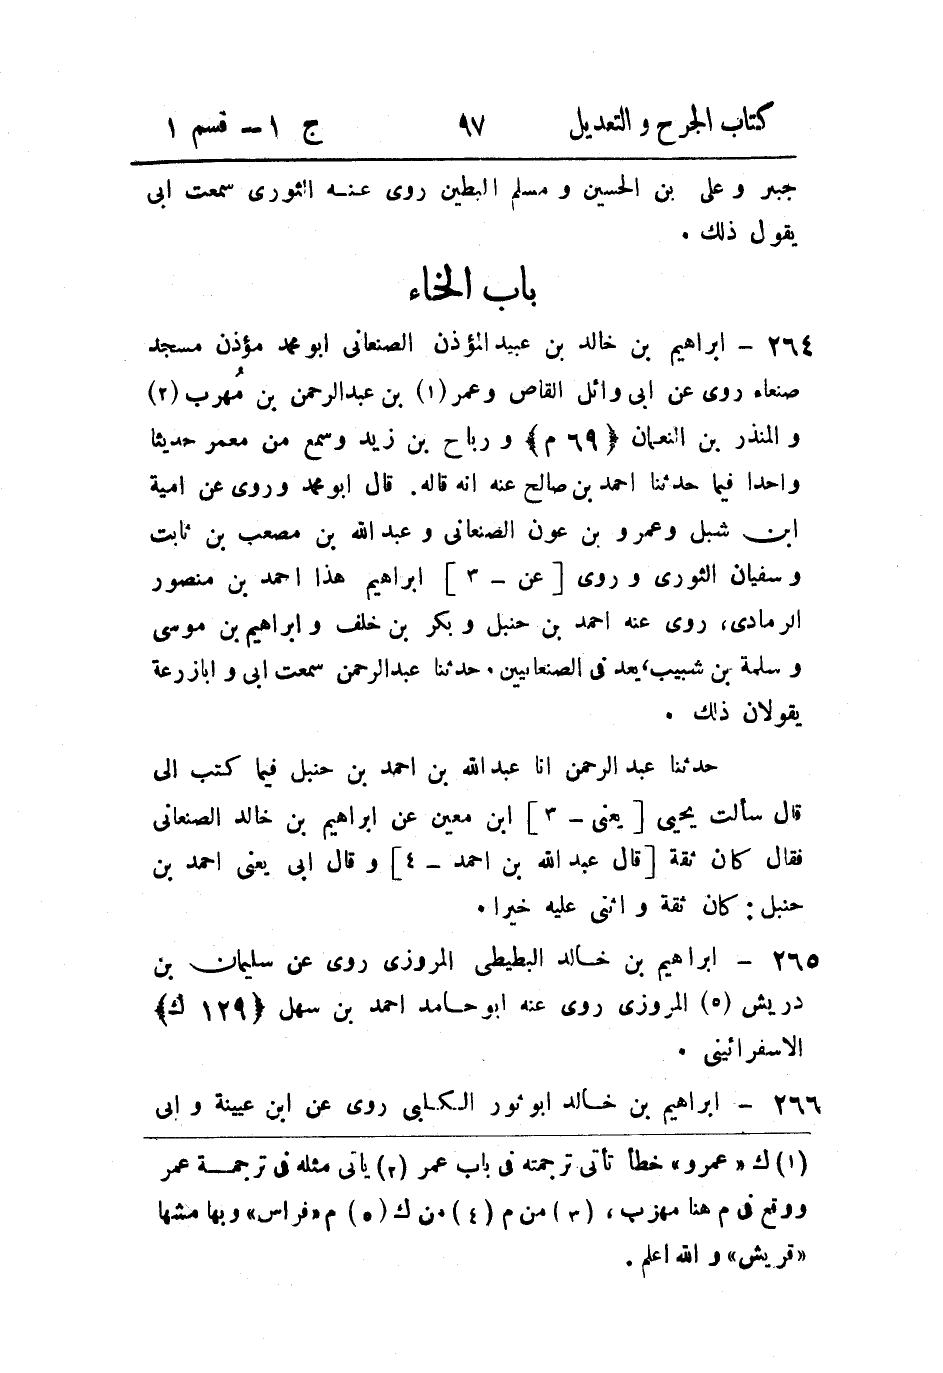 كتاب الجرح و التعديل ٩٧ ج ١ – قسم ١
جبير و على بن الحسين و مسلم البطين روى عنه الثورى سمعت ابى
يقول ذلك .
باب الخاء
٢٦٤ – ابراهيم بن خالد بن عبيد المؤذن الصنعانى ابو محمد مؤذن مسجد
صنعاء روى عن ابى وائل القاص وعمر (١) بن عبدالرحمن بن مُهرب (٢)
و المنذر بن النعمان ﴿٦٩ م﴾ و رباح بن زيد وسمع من معمر حديثا
واحدا فيما حدثنا احمد بن صالح عنه انه قاله. قال ابو محمد وروى عن امية
ابن شبل وعمرو بن عون الصنعانى و عبد الله بن مصعب بن ثابت
و سفيان الثورى و روى [ عن – ٣ ] ابراهيم هذا احمد بن منصور
الرمادى، روى عنه احمد بن حنبل و بكر بن خلف و ابراهيم بن موسى
و سلمة بن شبيب، يعد فى الصنعانيين . حدثنا عبدالرحمن سمعت ابى و ابازرعة
يقولان ذلك .
حدثنا عبد الرحمن انا عبد الله بن احمد بن حنبل فيما كتب الى
قال سألت يحيى [ يعنى – ٣ ] ابن معين عن ابراهيم بن خالد الصنعانى
فقال كان ثقة [قال عبد الله بن احمد – ٤] و قال ابى يعنى احمد بن
حنبل : كان ثقة و اثنى عليه خيرا .
٢٦٥ – ابراهيم بن خالد البطيطى المروزى روى عن سليمان بن
دريش (٥) المروزى روى عنه ابو حامد احمد بن سهل ﴿١٢٩ ك﴾
الاسفرائينى .
٢٦٦ – ابراهيم بن خالد ابو ثور الكلبى روى عن ابن عيينة و ابى
(١) ك «عمرو» خطأ تأتى ترجمته فى باب عمر (٢) ياتى مثله فى ترجمة عمر
ووقع فى م هنا مهزب ، (٣) من م (٤) من ك (٥) م «فراس» وبها مشها
«قريش» و الله اعلم .